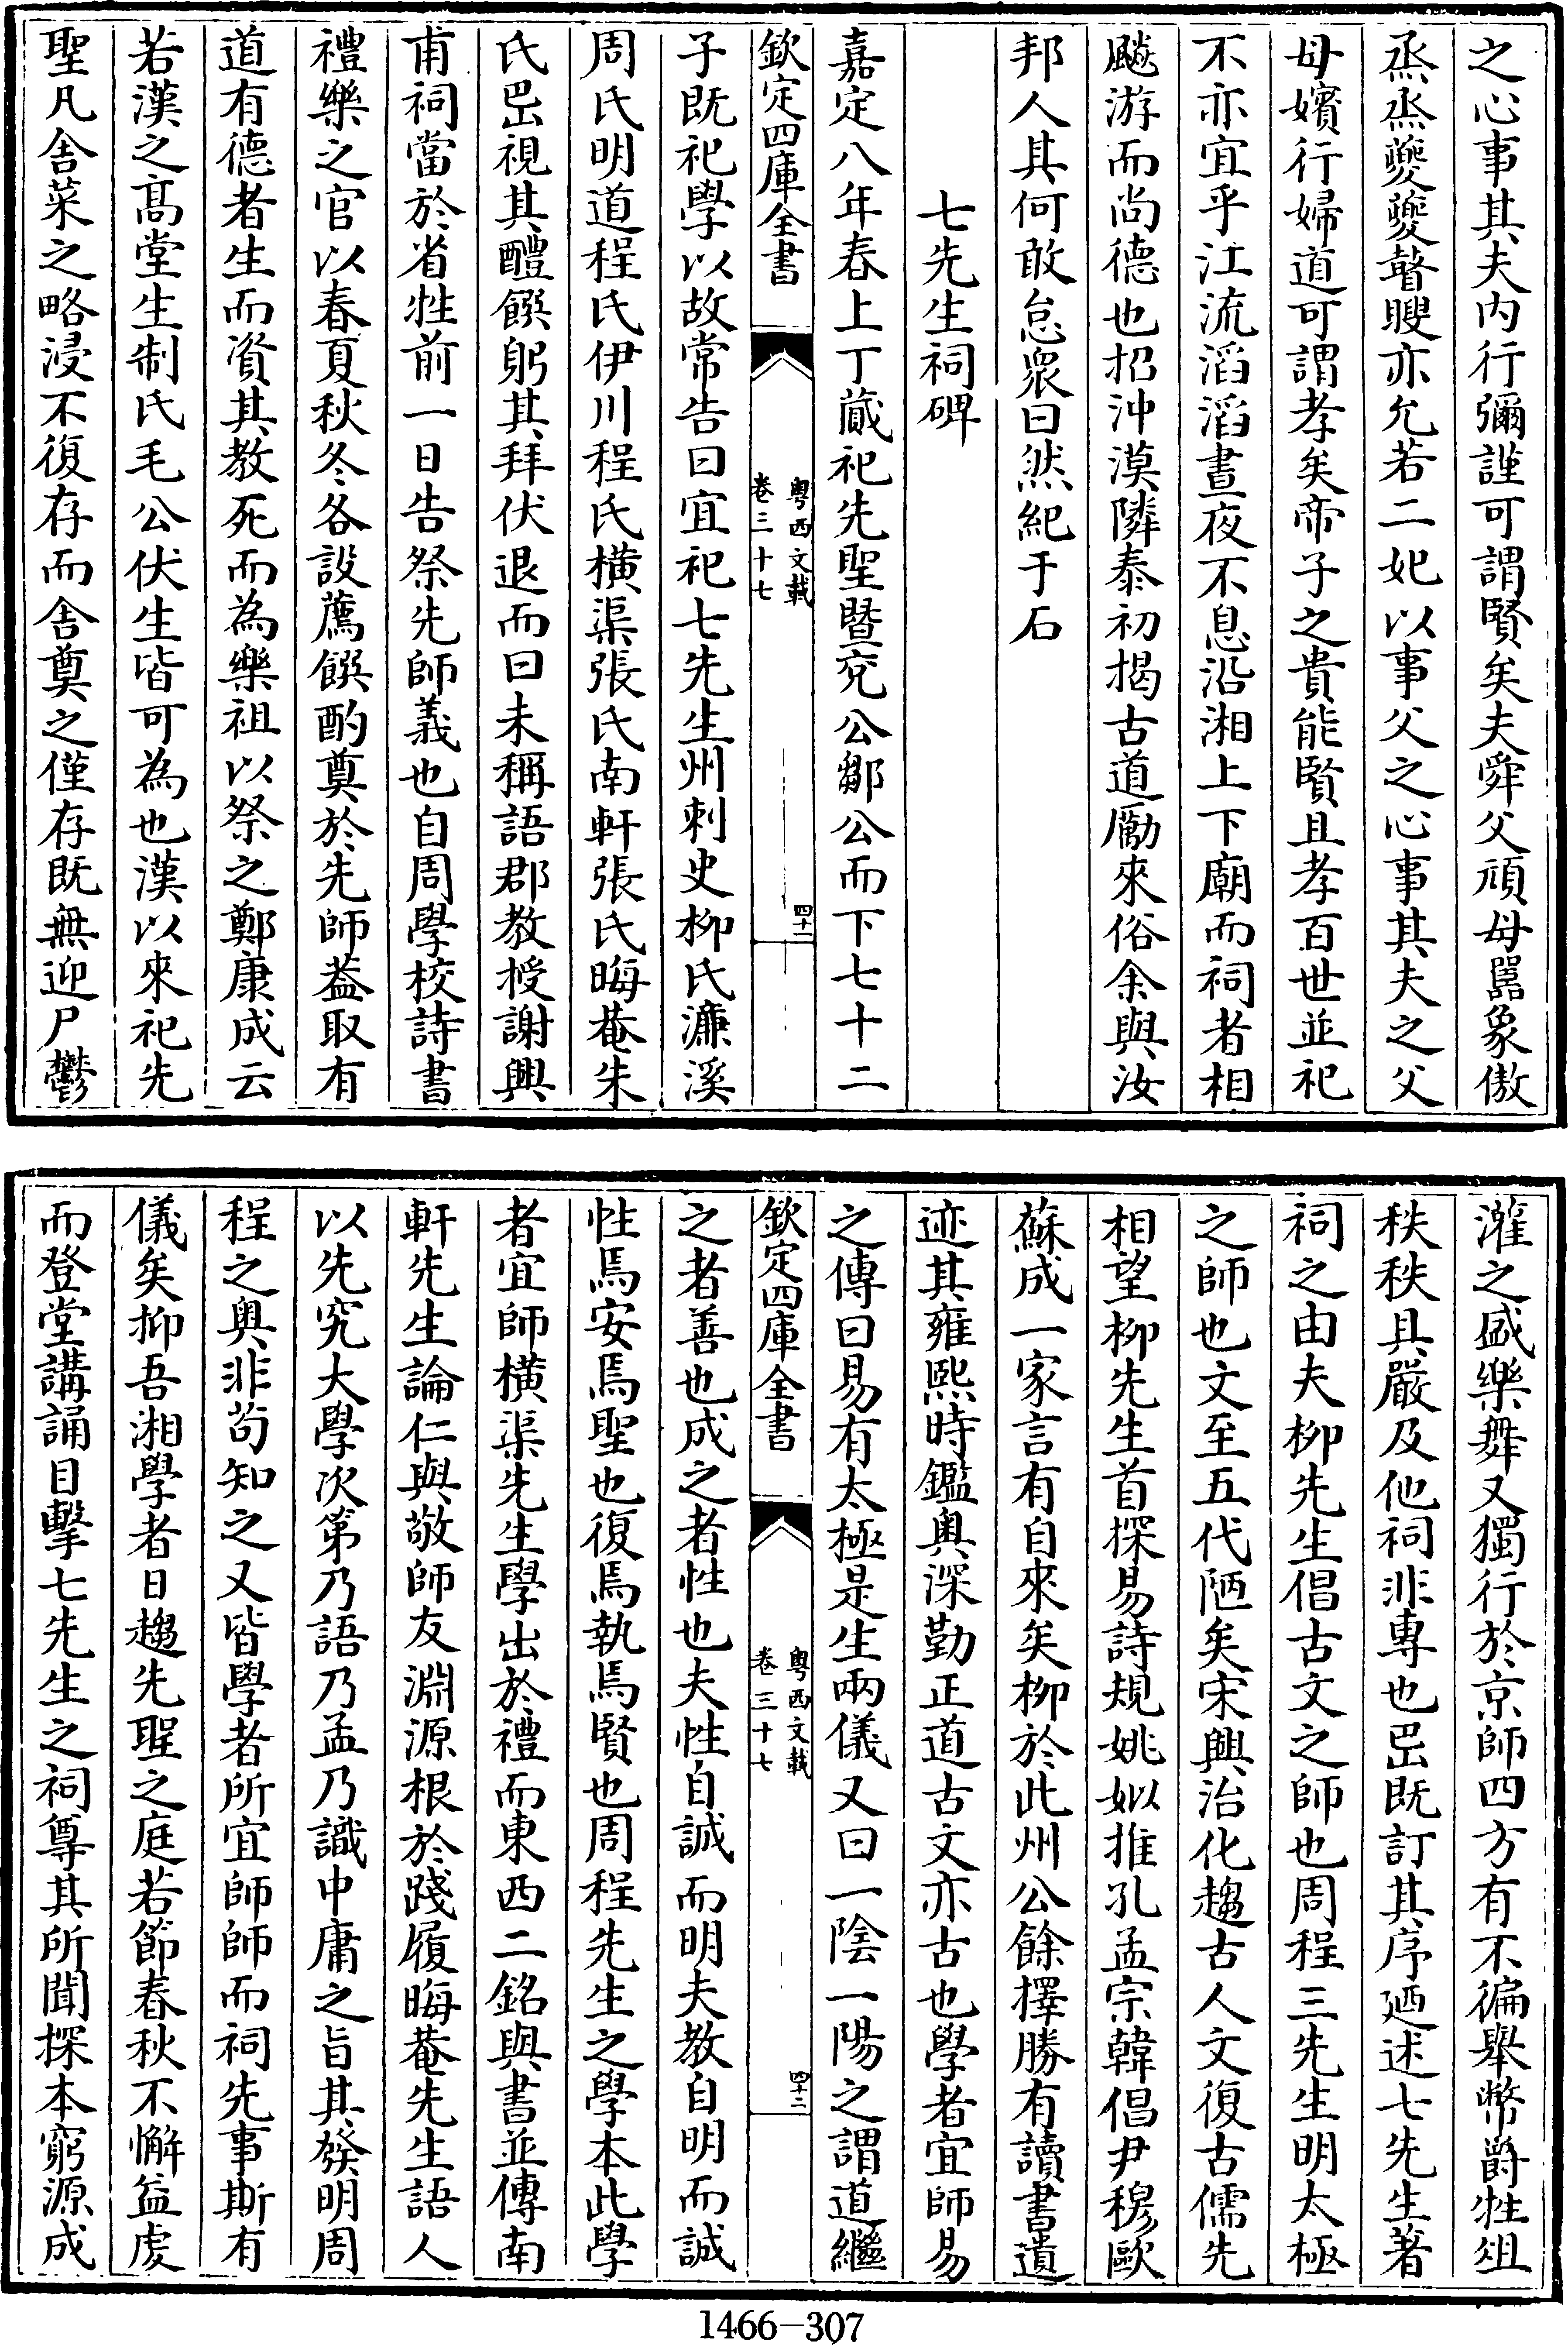 之心事其夫内行彌謹可謂賢矣夫舜父頑母嚚象傲
烝烝夔夔瞽瞍亦允若二妃以事父之心事其夫之父
母嬪行婦道可謂孝矣帝子之貴能賢且孝百世並祀
不亦宜乎江流滔滔晝夜不息沿湘上下廟而祠者相
颷游而尚德也招沖漠隣泰初揭古道勵來俗余與汝
邦人其何敢怠衆曰然紀于石
七先生祠碑
嘉定八年春上丁蕆祀先聖暨兖公鄒公而下七十二
欽定四庫全書
粤西文載
卷三十七
四十一
子既祀學以故常告曰宜祀七先生州刺史柳氏濓溪
周氏明道程氏伊川程氏横渠張氏南軒張氏晦菴朱
氏岊視其醴饌躬其拜伏退而曰未稱語郡教授謝興
甫祠當於省牲前一日告祭先師義也自周學校詩書
禮樂之官以春夏秋冬各設薦饌酌奠於先師葢取有
道有德者生而資其教死而為樂祖以祭之鄭康成云
若漢之髙堂生制氏毛公伏生皆可為也漢以來祀先
聖凡舍菜之略浸不復存而舍奠之僅存既無迎尸鬱
灌之盛樂舞又獨行於京師四方有不徧舉幣爵牲俎
秩秩具嚴及他祠非專也岊既訂其序廼述七先生著
祠之由夫柳先生倡古文之師也周程三先生明太極
之師也文至五代陋矣宋興治化趨古人文復古儒先
相望柳先生首探易詩規姚姒推孔孟宗韓倡尹穆歐
蘇成一家言有自來矣柳於此州公餘擇勝有讀書遺
迹其雍熙時鑑奥深勤正道古文亦古也學者宜師易
之傳曰易有太極是生兩儀又曰一陰一陽之謂道繼
欽定四庫全書
粤西文載
卷三十七
四十二
之者善也成之者性也夫性自誠而明夫教自明而誠
性焉安焉聖也復焉執焉賢也周程先生之學本此學
者宜師横渠先生學出於禮而東西二銘與書並傳南
軒先生論仁與敬師友淵源根於踐履晦菴先生語人
以先究大學次第乃語乃孟乃識中庸之旨其發明周
程之奥非苟知之又皆學者所宜師師而祠先事斯有
儀矣抑吾湘學者日趨先聖之庭若節春秋不懈益虔
而登堂講誦目擊七先生之祠尊其所聞探本窮源成
1466-307